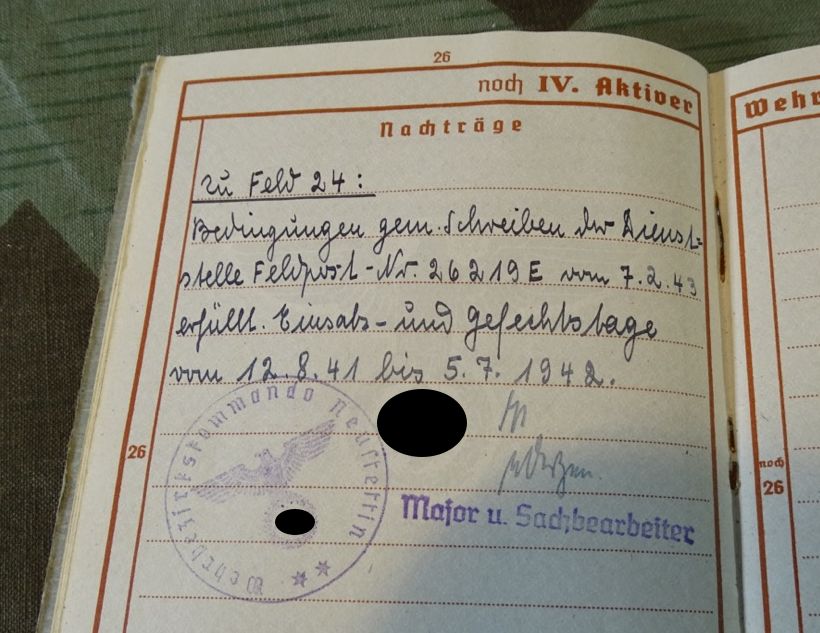 26
noch IV. Aktiver
Wehr
Nachträge
zu Feld 24:
Bedingungen gem. Schreiben der Dienst=
stelle Feldpost-Nr. 26219E vom 7.2.43
erfüllt. Einsatz- und Gefechtstage
vom 12.8.41 bis 5.7.1942.
Wehrbezirkskommando Neustettin
26
noch
26
Major u. Sachbearbeiter